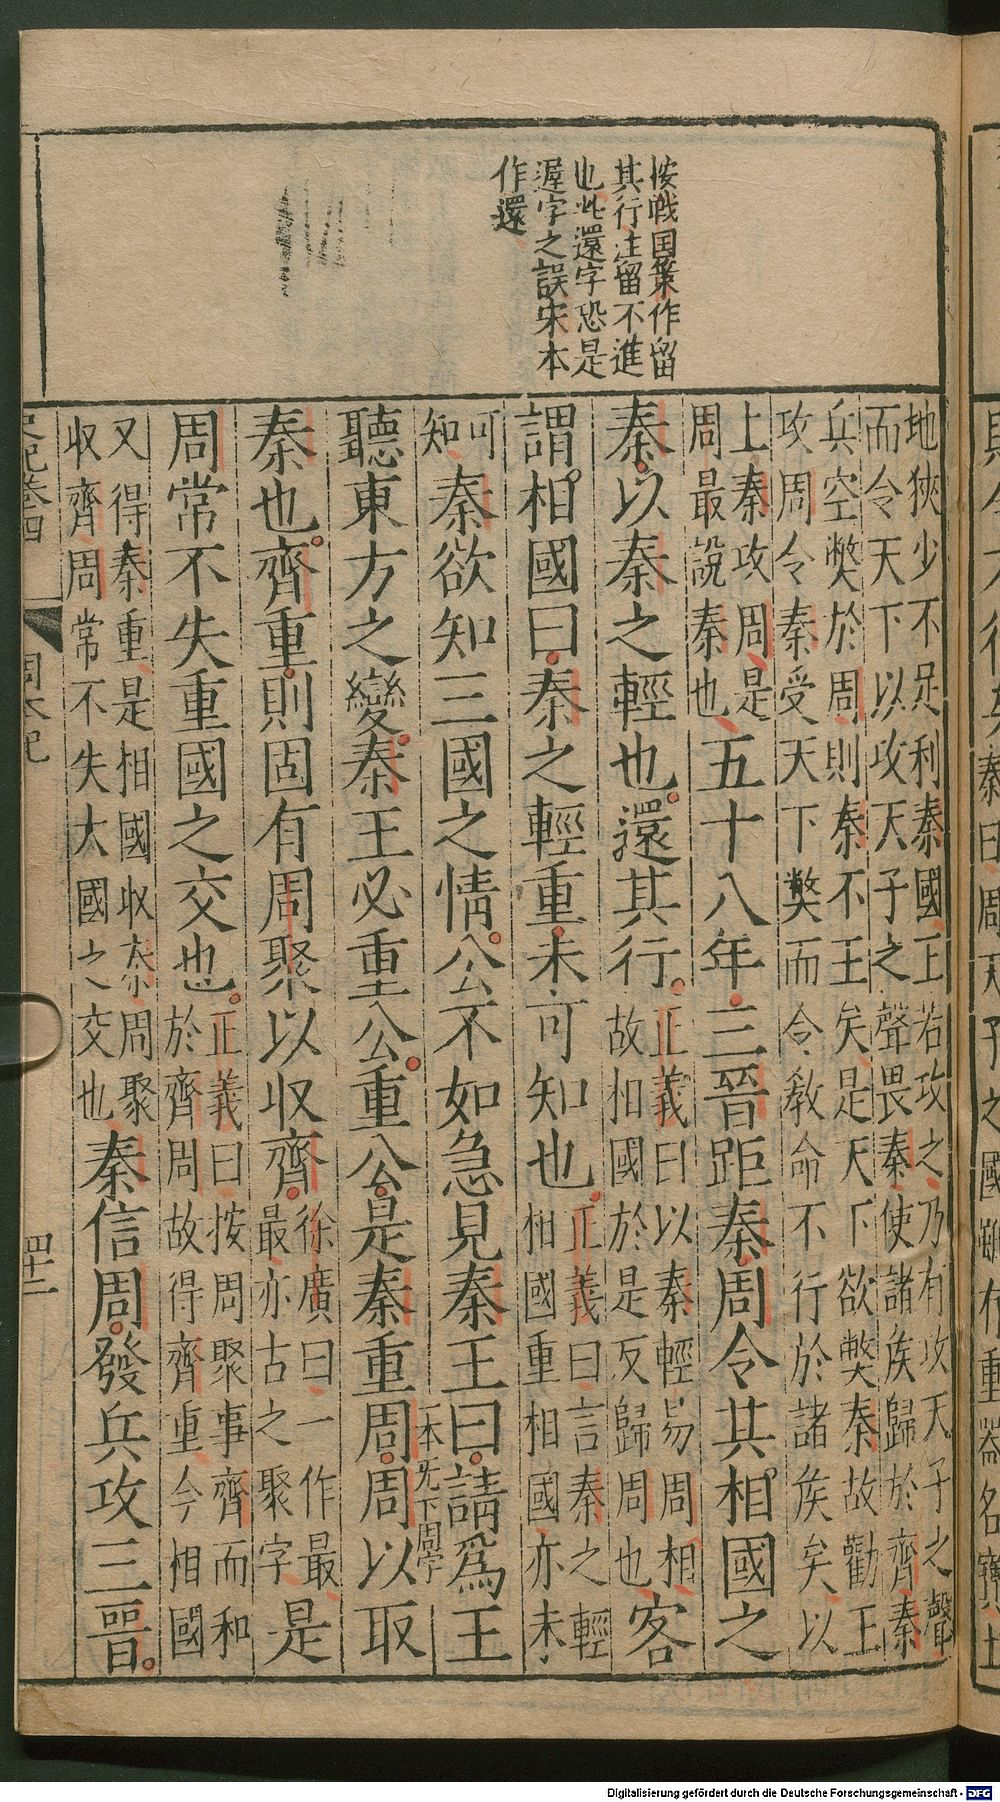 按戰国策作留
其行注留不進
也此還字恐是
遲字之誤宋本
作還
地狹少不足利秦國王若攻之乃有攻天子之聲
而令天下以攻天子之聲畏秦使諸侯歸於齊秦
兵空獘於周則秦不王矣是天下欲獘秦故勸王
攻周令秦受天下獘而令教命不行於諸侯矣以
上秦攻周是
周最說秦也
五十八年三晉距秦周令其相國之
秦以秦之輕也還其行
正義曰以秦輕易周相
故相國於是反歸周也
客
謂相國曰秦之輕重未可知也
正義曰言秦之輕
相國重相國亦未
可
知
秦欲知三國之情公不如急見秦王曰請為王
聽東方之變秦王必重公重公是秦重周
一本先下周字
周以取
秦也齊重則固有周聚以収齊
徐廣曰一作最
最亦古之聚字
是
周常不失重國之交也
正義曰按周聚事齊而和
於齊周故得齊重今相國
又得秦重是相國収秦周聚
収齊周常不失大國之交也
秦信周發兵攻三晉
史記卷四
周本紀
四十一
Digitalisierung gefördert durch die Deutsche Forschungsgemeinschaft - DFG